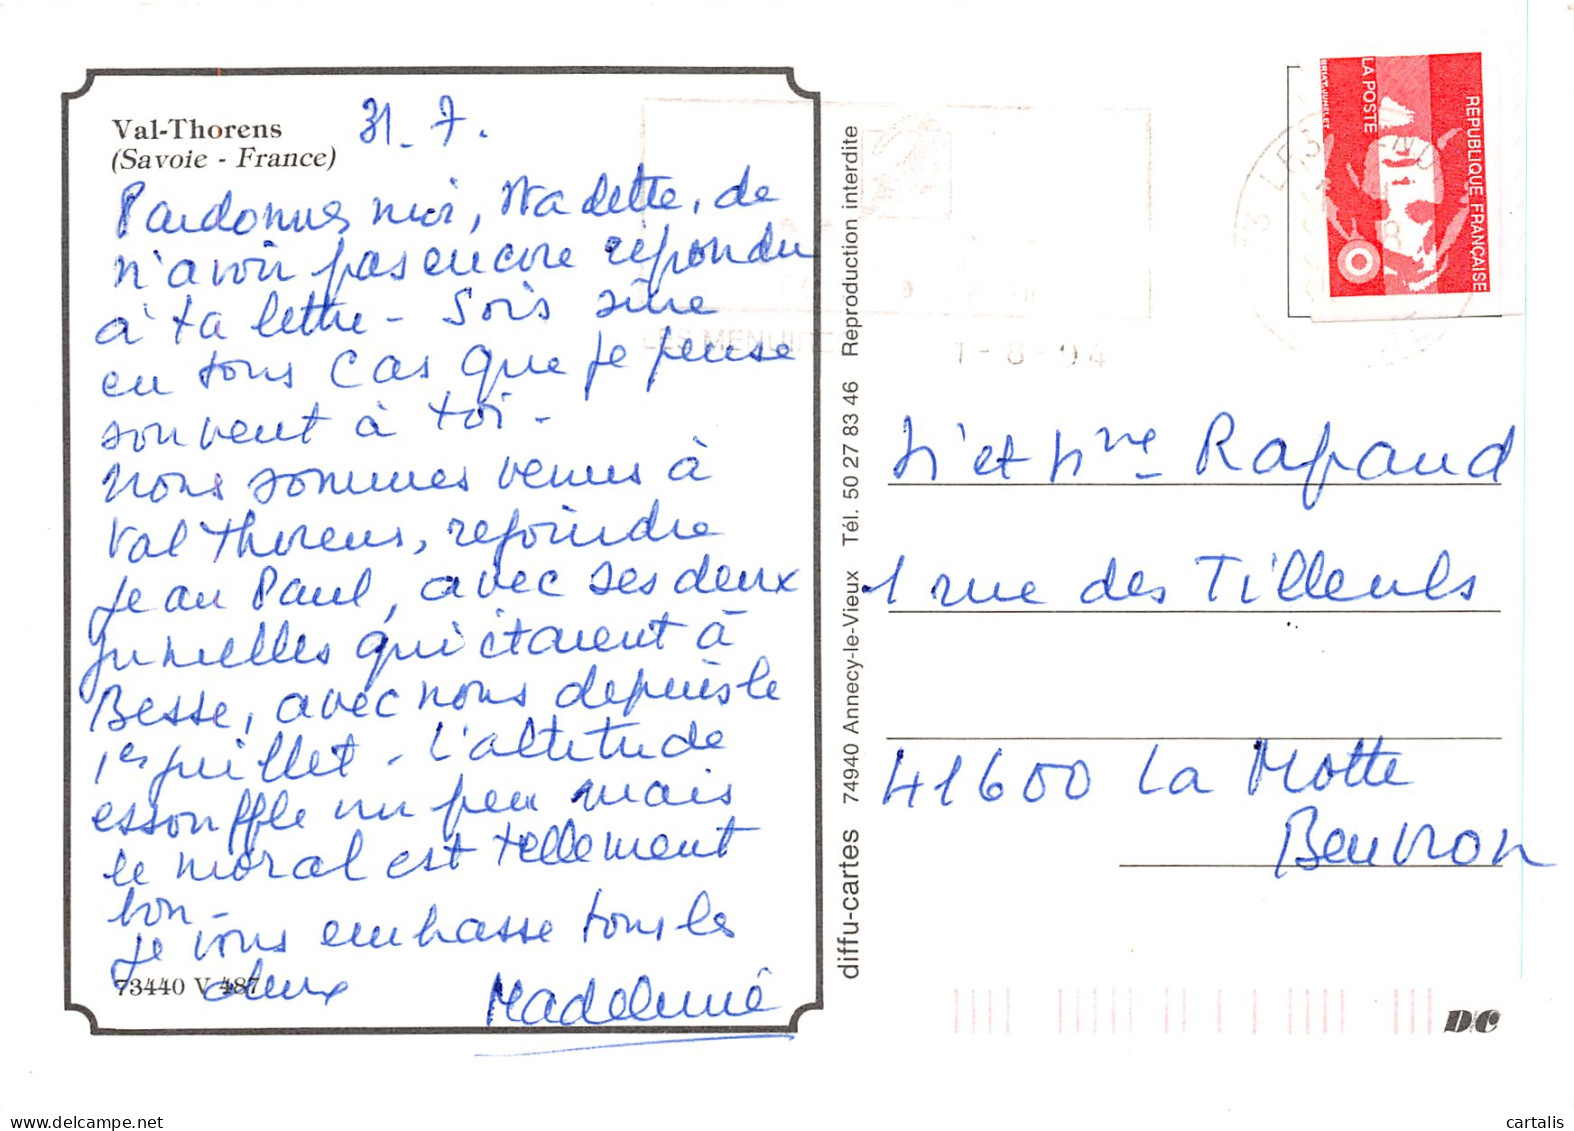 Val-Thorens
(Savoie - France)
31-7.
Pardonnes moi, Nadette, de
n'avoir pas encore répondu
à ta lettre - Sois sûre
en tous cas que je pense
souvent à toi -
Nous sommes venus à
Val Thorens, rejoindre
Jean Paul, avec ses deux
jumelles qui étaient à
Besse, avec nous depuis le
1er juillet - L'altitude
essouffle un peu mais
le moral est tellement
bon -
Je vous embrasse tous les
deux
Madeleine
73440 V 487
diffu-cartes 74940 Annecy-le-Vieux Tél. 50 27 83 46 Reproduction interdite
LES MENUIRES
1-8-94
REPUBLIQUE FRANÇAISE
LA POSTE
BRIAT-JUMELET
M et Mme Rapaud
1 rue des Tilleuls
41600 La Motte
Beuvron
D/C
delcampe.net
cartalis